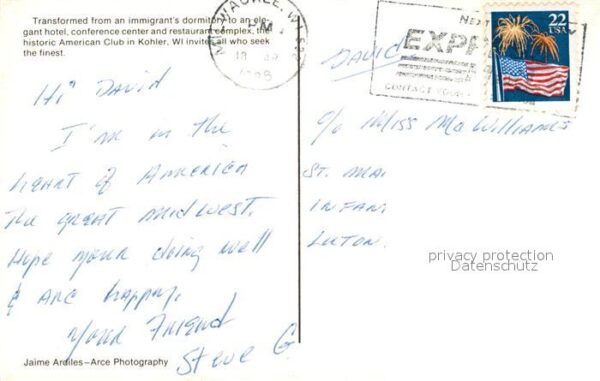 Transformed from an immigrant's dormitory to an ele-
gant hotel, conference center and restaurant complex, the
historic American Club in Kohler, WI invites all who seek
the finest.
MILWAUKEE, WI
PM
22
USA
EXP
CONTACT YOUR
Hi David
I'm in the
heart of America
The great midwest.
Hope your doing well
& are happy.
Your Friend
Steve G.
David
c/o Miss McWilliams
St. Ma.
Infan.
Luton.
privacy protection
Datenschutz
Jaime Ardiles–Arce Photography